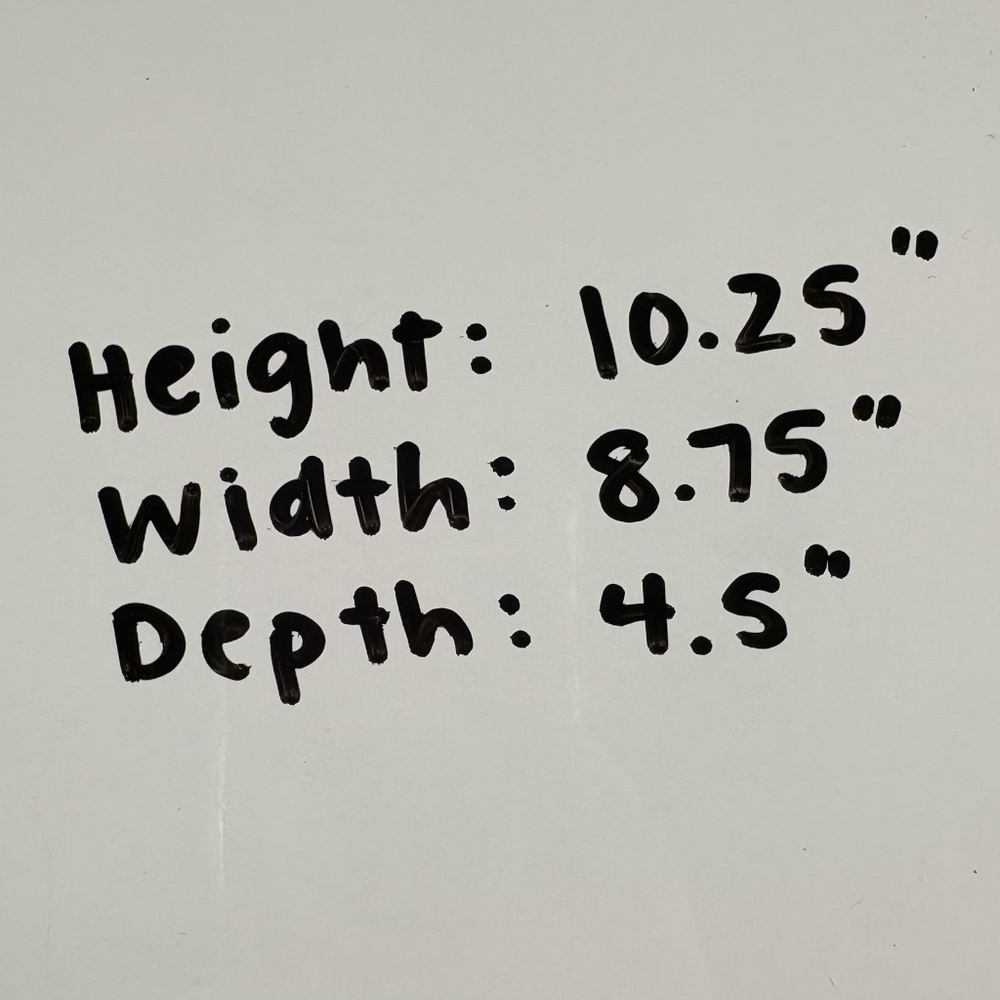 Height: 10.25"
Width: 8.75"
Depth: 4.5"